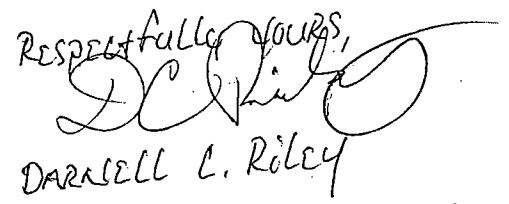 Respectfully yours,
DC Riley
DARNELL C. RiLEY